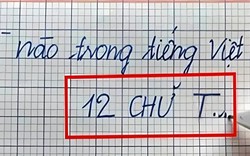 nào trong tiếng Việt
12 CHỮ T...